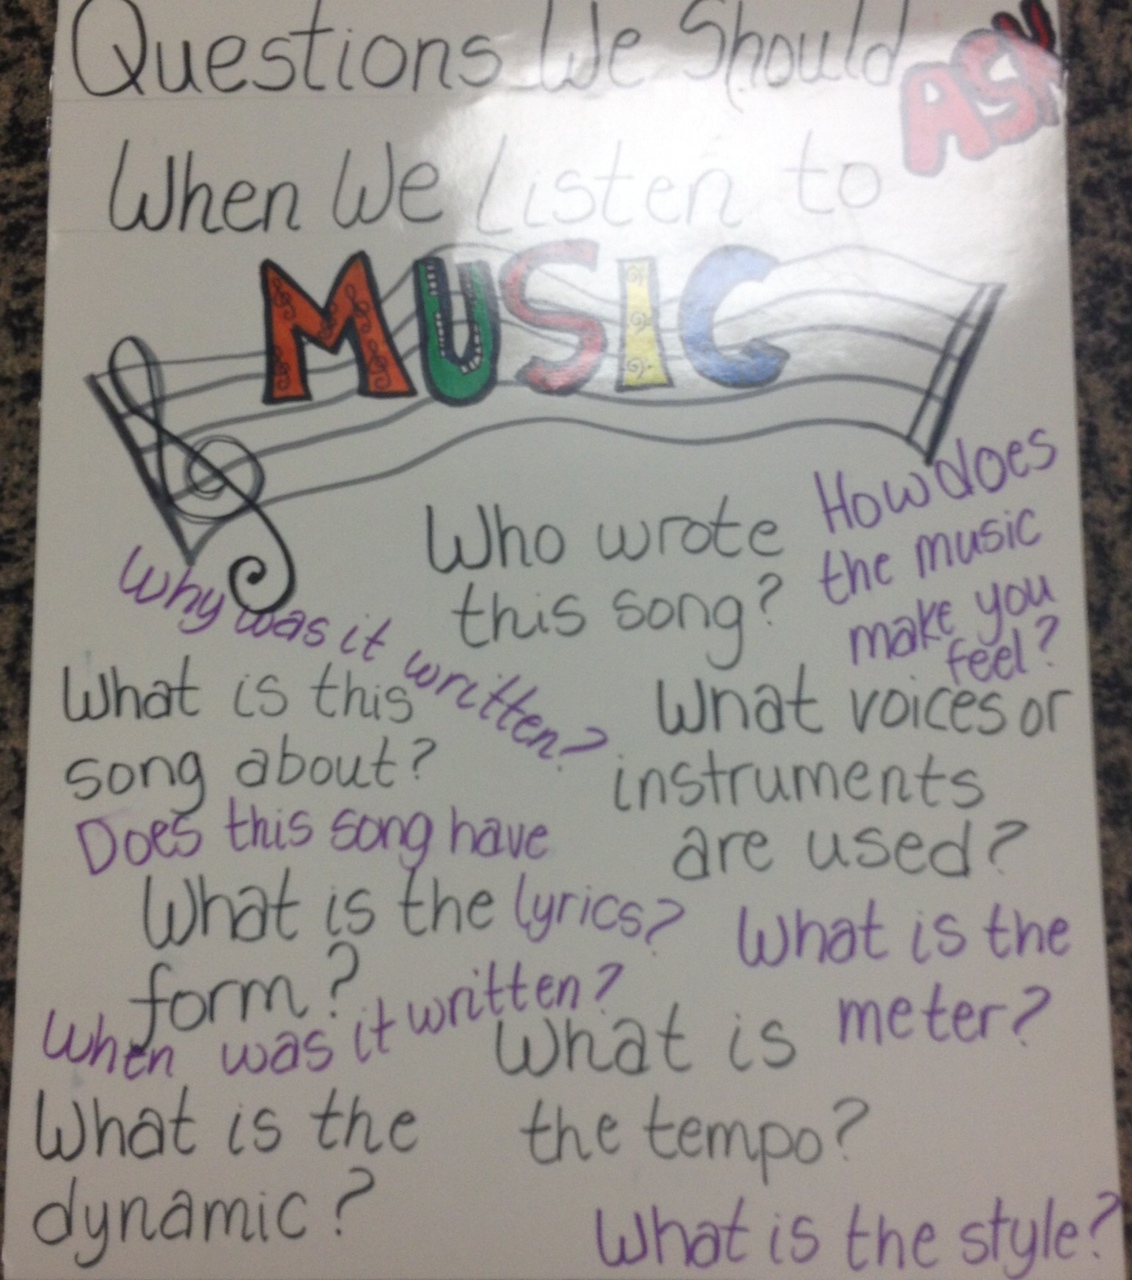 Questions We Should ASK
When We Listen to
MUSIC
Who wrote
this song?
How does
the music
make you
feel?
Why was it written?
What is this
song about?
What voices or
instruments
are used?
Does this song have
lyrics?
What is the
form?
What is the
meter?
When was it written?
What is
the tempo?
What is the
dynamic?
What is the style?